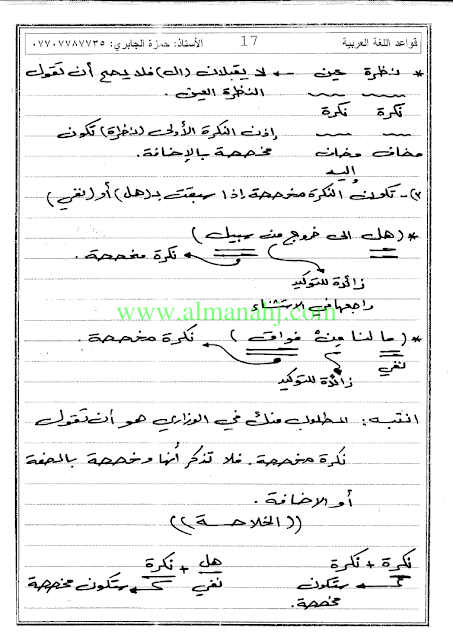 قواعد اللغة العربية 17 الأستاذ: حمزة الجابري: ٠٧٧٠٧٧٨٧٧٣٥
* نظرة عين ← لا يقبلان (ال) فلا يصح أن تقول
النظرة العين.
نكرة نكرة
إذن النكرة الأولى (نظرة) تكون
مضاف مضاف مخصصة بالإضافة.
إليه
٣)- تكون النكرة مخصصة إذا سبقت بـ(هل) أو (نفي)
* (هل الى خروج من سبيل) نكرة مخصصة.
زائدة للتوكيد
راجعها في الاستثناء
www.almanahj.com
* (ما لنا مِنْ فواق) نكرة مخصصة.
نفي
زائدة للتوكيد
انتبه: المطلوب منك في الوزاري هو أن تقول
نكرة مخصصة. فلا تذكر أنها مخصصة بالصفة
أو الاضافة.
((الخلاصة))
نكرة + نكرة هل + نكرة
ستكون نفي ستكون مخصصة
مخصصة.